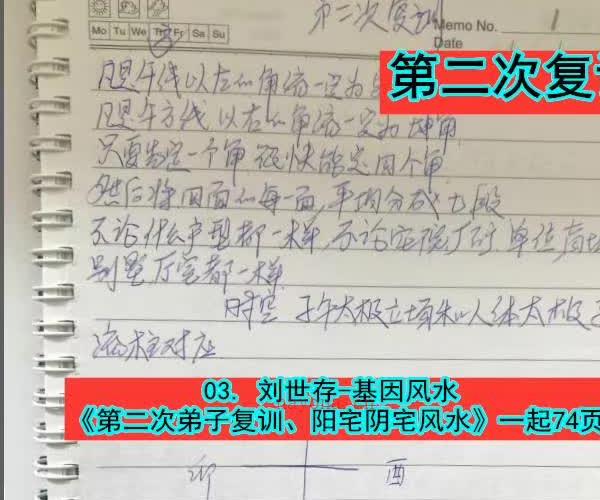 第二次复训
Memo No.
Mo Tu We Th Fr Sa Su
Date
第二次复
凡是午线以左的角缩一定为
凡是午方线以右的角缩一定为坤角
只要定一个角,很快能定四个角
然后将四面的每一面,平均分成七段
不论什么户型都一样,不论定院厂厅,单位商场
别墅厅室都一样
时空 子午太极立场
对应
03. 刘世存-基因风水
《第二次弟子复训、阳宅阴宅风水》一起74页
卯 酉